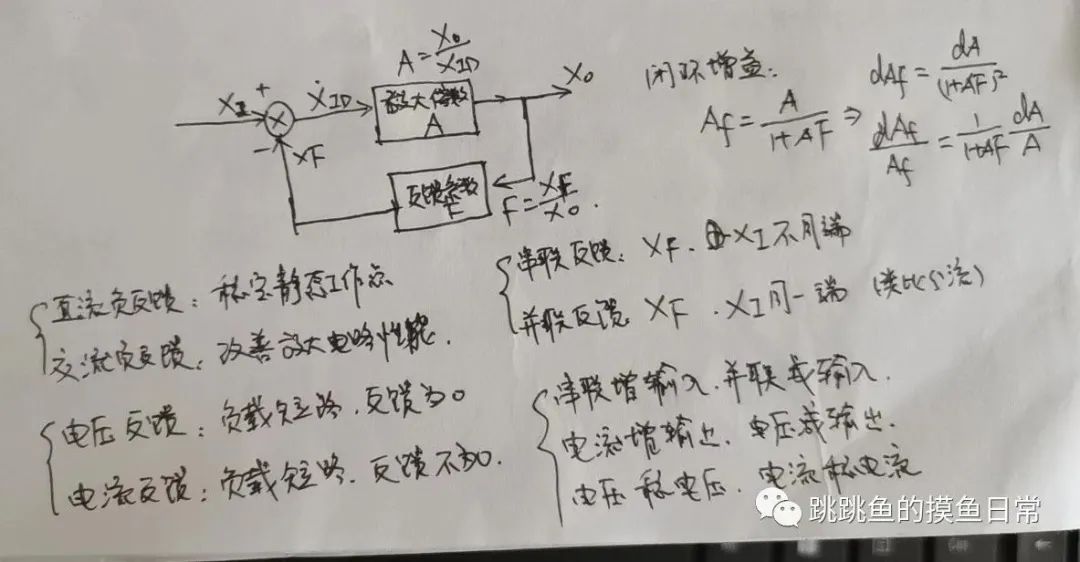 A = X₀/X_ID
X_I + X_ID 放大倍数 X₀
A
- XF
反馈系数 F = XF/X₀.
F
闭环增益: dAf = dA/(1+AF)²
Af = A/(1+AF) ⇒ dAf/Af = 1/(1+AF) dA/A
直流负反馈：稳定静态工作点
交流负反馈：改善放大电路性能.
电压反馈：负载短路.反馈为0
电流反馈：负载短路.反馈不为0.
串联反馈：XF.XI不同端
并联反馈 XF.XI同一端 (类比分流)
串联增输入.并联减输入.
电流增输出.电压减输出.
电压稳电压.电流稳电流
跳跳鱼的摸鱼日常